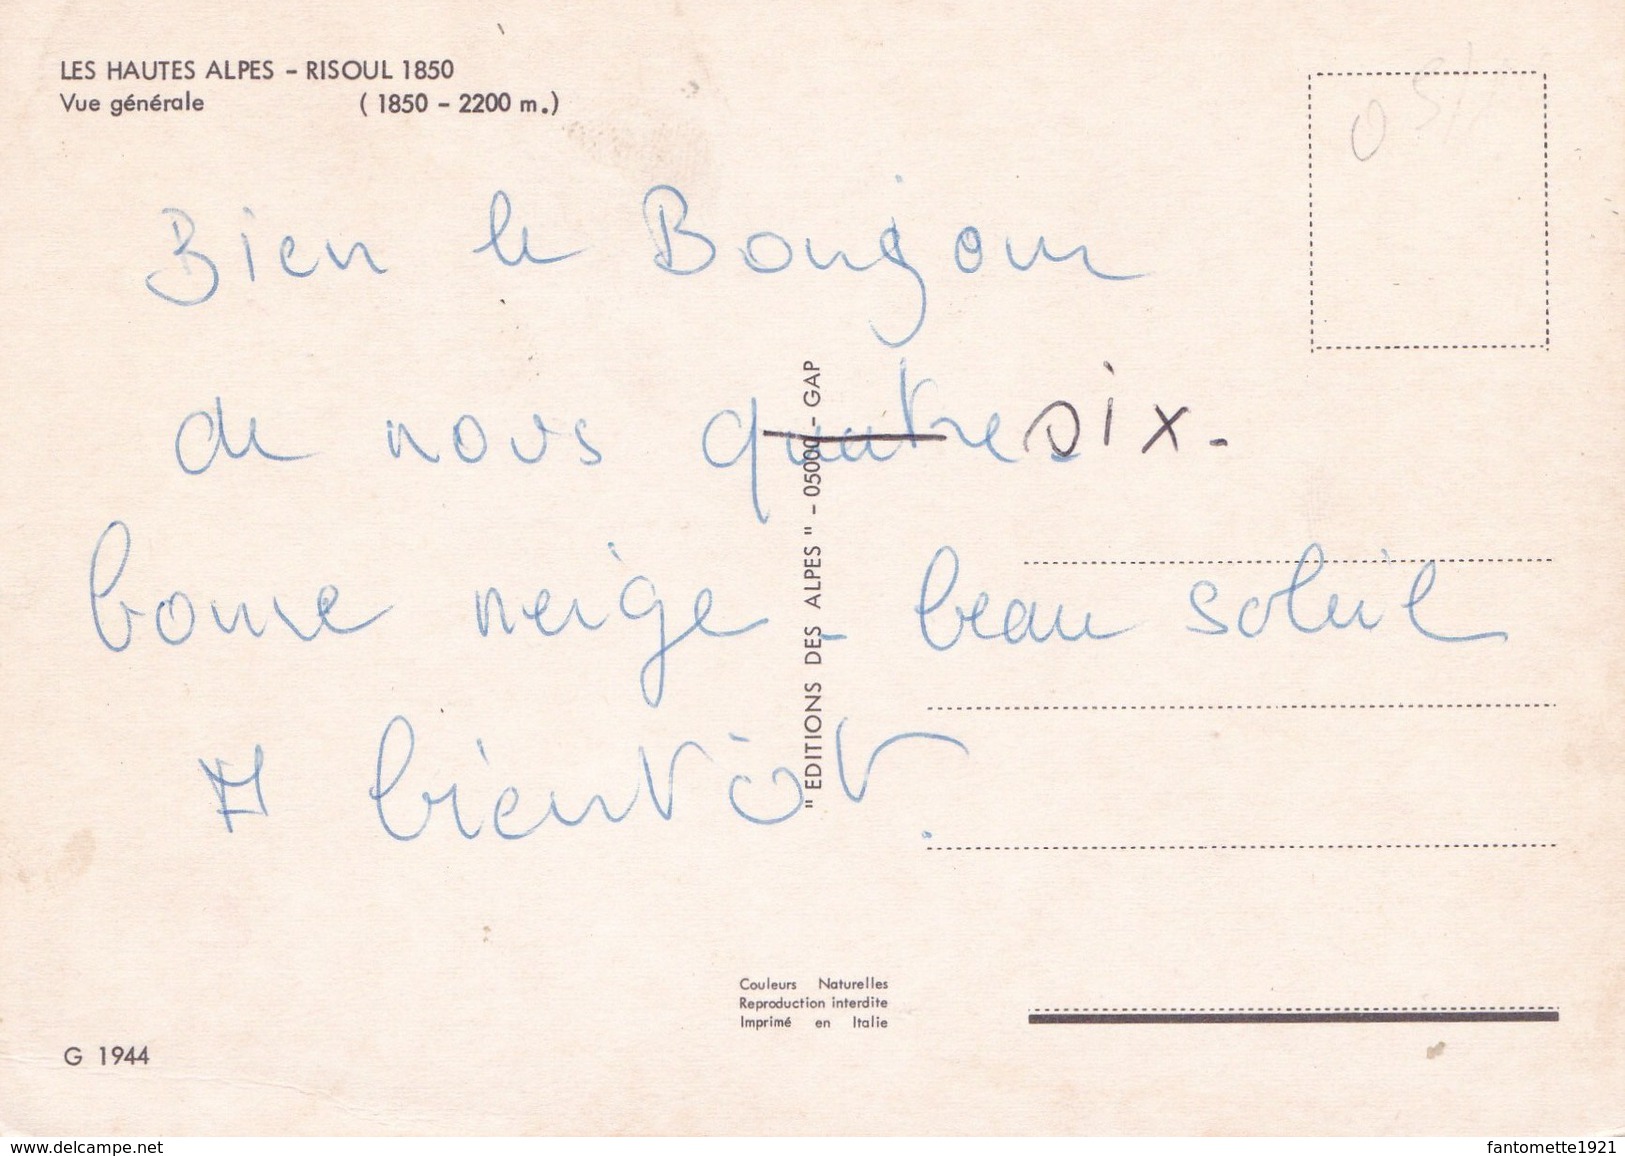 LES HAUTES ALPES - RISOUL 1850
Vue générale ( 1850 - 2200 m.)
Bien le Bonjour
de nous quatre six.
bonne neige - beau soleil
A bientôt.
"EDITIONS DES ALPES" - 05000 - GAP
Couleurs Naturelles
Reproduction interdite
Imprimé en Italie
G 1944
www.delcampe.net
fantomette1921